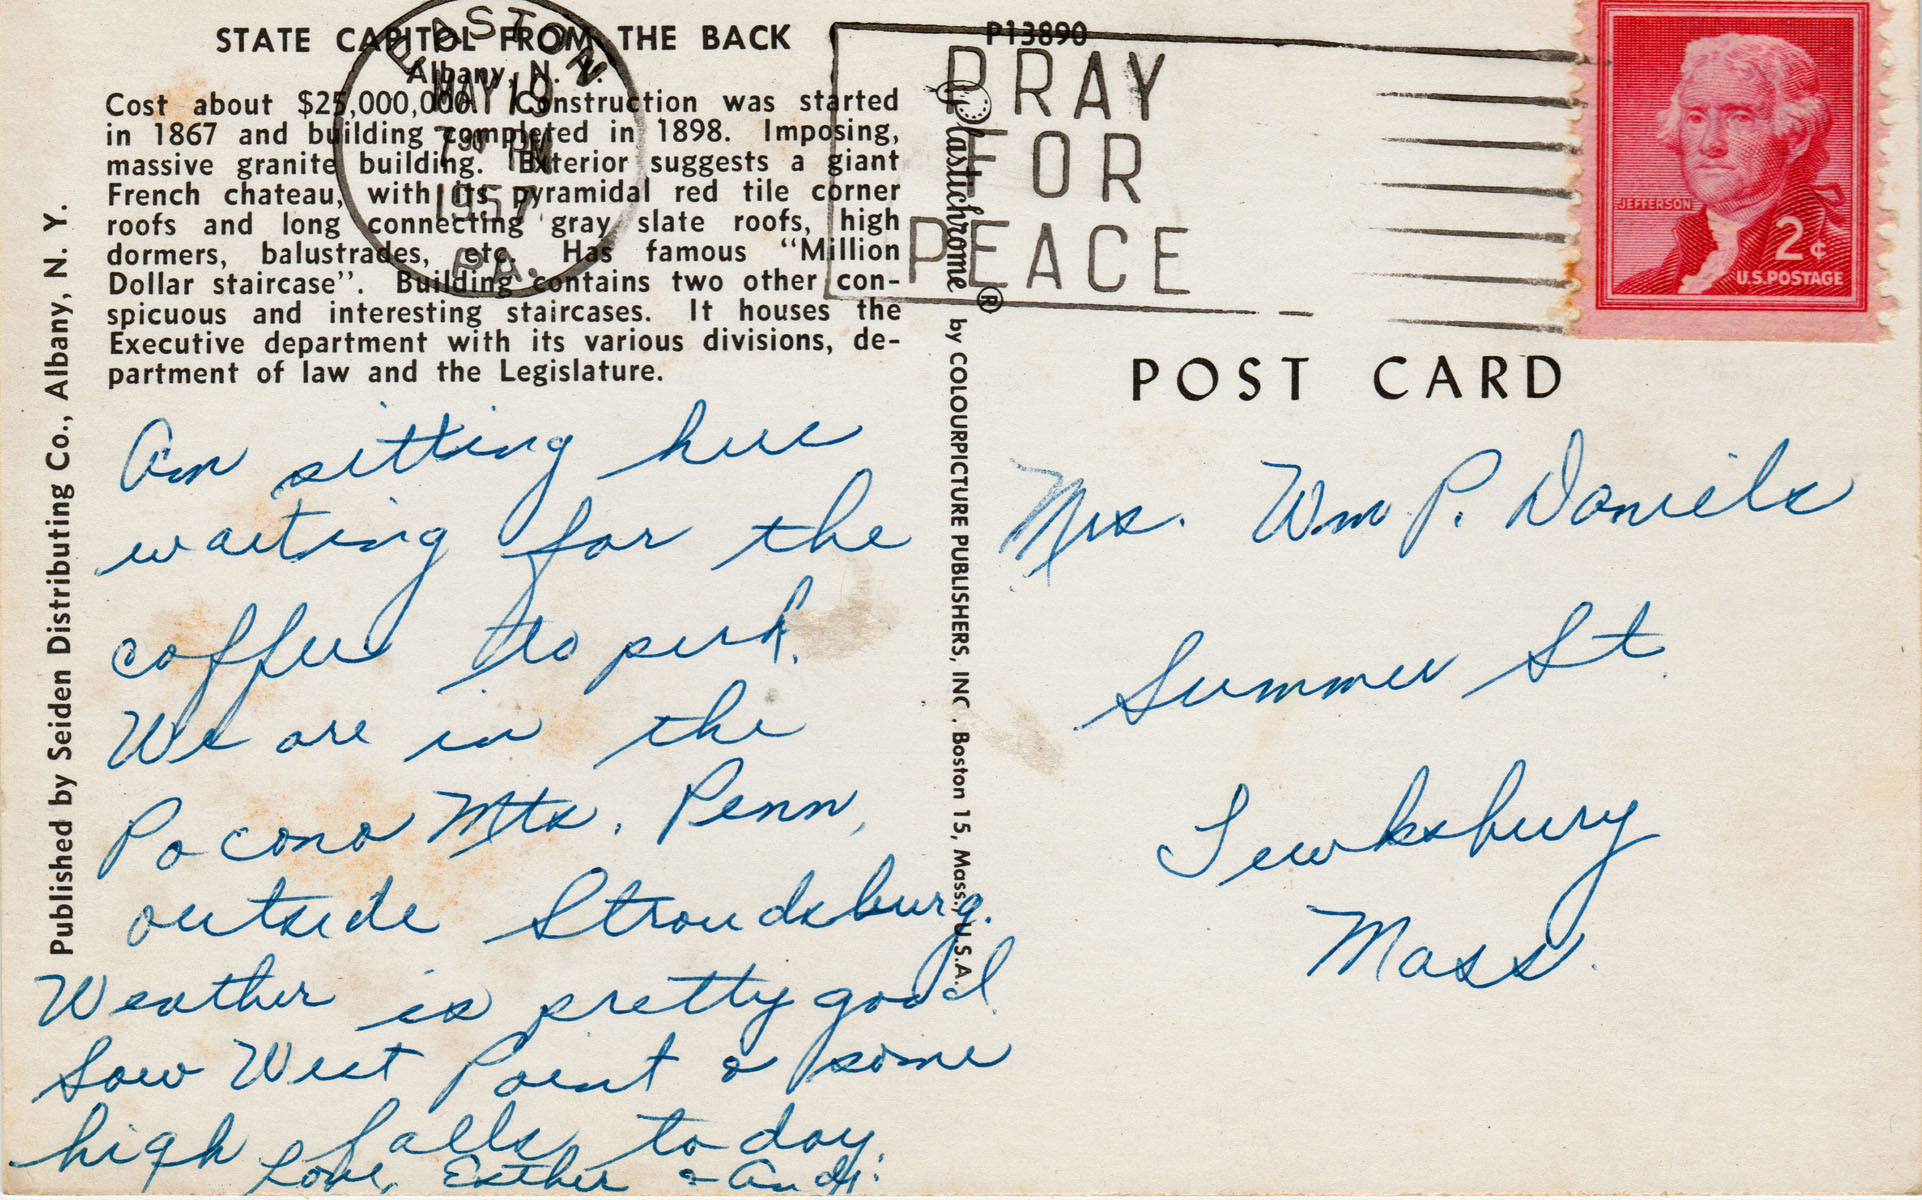 STATE CAPITOL FROM THE BACK
Albany, N. Y.
Cost about $25,000,000. Construction was started
in 1867 and building completed in 1898. Imposing,
massive granite building. Exterior suggests a giant
French chateau, with its pyramidal red tile corner
roofs and long connecting gray slate roofs, high
dormers, balustrades, etc. Has famous “Million
Dollar staircase”. Building contains two other con-
spicuous and interesting staircases. It houses the
Executive department with its various divisions, de-
partment of law and the Legislature.
EASTON
MAY 19
7 30 PM
1957
PA.
P13890
PRAY
FOR
PEACE
JEFFERSON
2¢
U.S. POSTAGE
Published by Seiden Distributing Co., Albany, N. Y.
Plastichrome ® by COLOURPICTURE PUBLISHERS, INC., Boston 15, Mass., U.S.A.
POST CARD
Am sitting here
waiting for the
coffee to perk.
We are in the
Pocono Mts. Penn,
outside Stroudsburg.
Weather is pretty good
Saw West Point & some
high falls to day.
Love, Esther & Andy.
Mrs. Wm P. Daniels
Summer St.
Tewksbury
Mass.